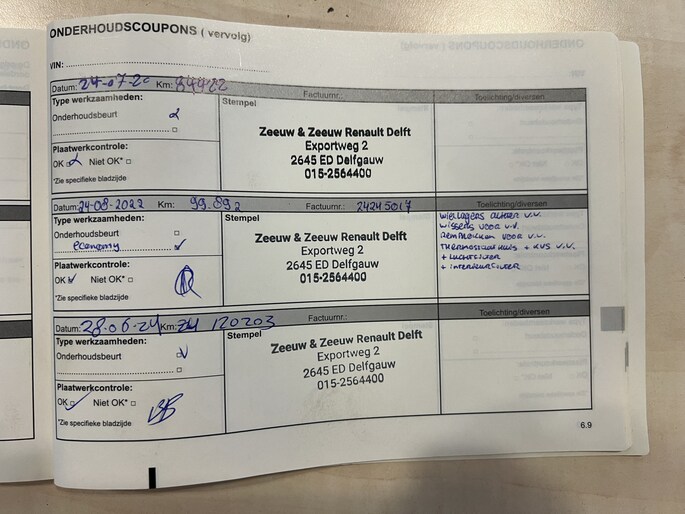 ONDERHOUDSCOUPONS ( vervolg)
VIN:
Datum: 24-07-2 Km: 84422 Factuurnr.: Toelichting/diversen
Type werkzaamheden:
Stempel
Onderhoudsbeurt
Plaatwerkcontrole:
OK Niet OK*
*Zie specifieke bladzijde
Zeeuw & Zeeuw Renault Delft
Exportweg 2
2645 ED Delfgauw
015-2564400
Datum: 24-08-2022 Km: 99.892 Factuurnr.: 24245017 Toelichting/diversen
Type werkzaamheden:
Stempel
Onderhoudsbeurt
economy
Plaatwerkcontrole:
OK Niet OK*
*Zie specifieke bladzijde
Zeeuw & Zeeuw Renault Delft
Exportweg 2
2645 ED Delfgauw
015-2564400
WIELLAGERS ACHTER V.V.
WISSERS VOOR V.V.
REMBLOKKEN VOOR V.V.
THERMOSTAATHUIS + KVS V.V.
+ LUCHTFILTER
+ INTERIEURFILTER
Datum: 28-06-24 Km: 24 120203 Factuurnr.: Toelichting/diversen
Type werkzaamheden:
Stempel
Onderhoudsbeurt
Plaatwerkcontrole:
OK Niet OK*
*Zie specifieke bladzijde
Zeeuw & Zeeuw Renault Delft
Exportweg 2
2645 ED Delfgauw
015-2564400
6.9